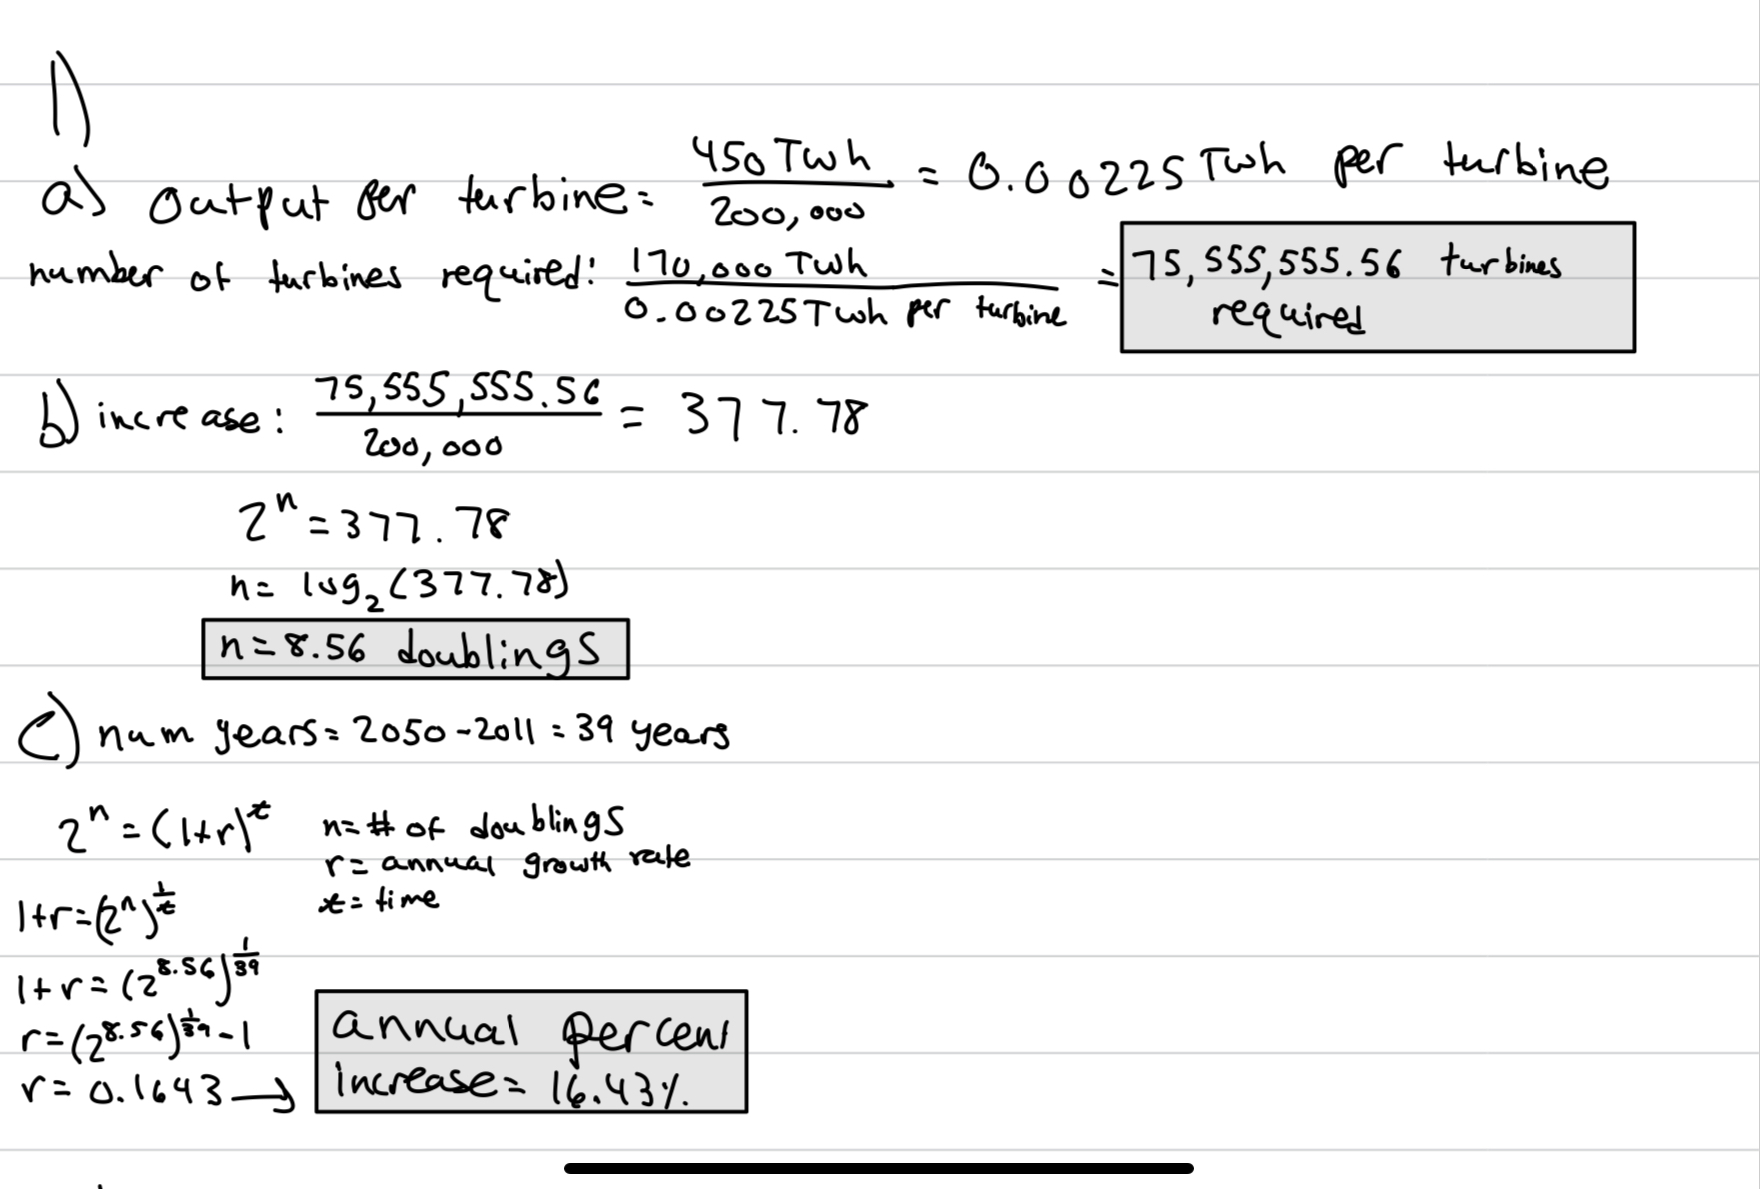 1)
a) output per turbine = 450 Twh / 200,000 = 0.00225 Twh per turbine
number of turbines required: 170,000 Twh / 0.00225 Twh per turbine = 75,555,555.56 turbines
required
b) increase: 75,555,555.56 / 200,000 = 377.78
2^n = 377.78
n = log_2(377.78)
n = 8.56 doublings
c) num years = 2050 - 2011 = 39 years
2^n = (1+r)^t n = # of doublings
r = annual growth rate
t = time
1+r = (2^n)^(1/t)
1+r = (2^8.56)^(1/39)
r = (2^8.56)^(1/39) - 1
r = 0.1643 → annual percent
increase = 16.43%